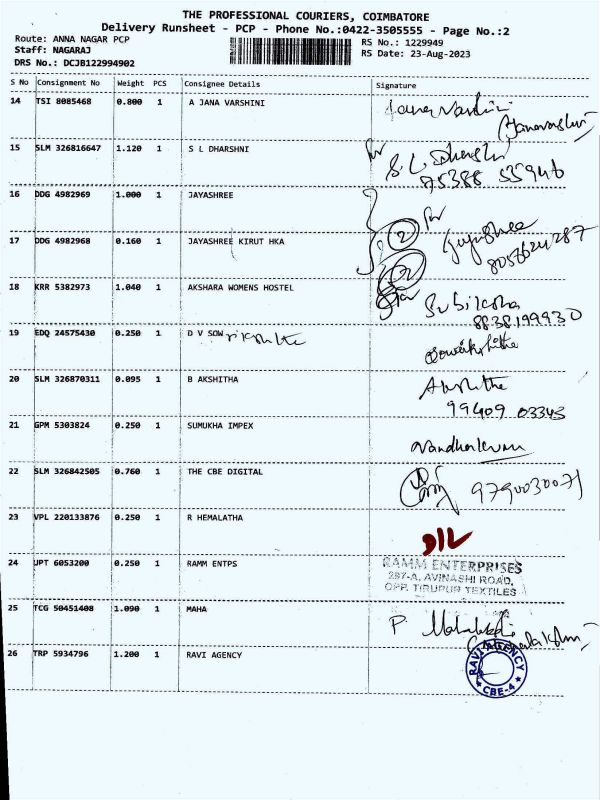 THE PROFESSIONAL COURIERS, COIMBATORE
Delivery Runsheet - PCP - Phone No.:0422-3505555 - Page No.:2
Route: ANNA NAGAR PCP
RS No.: 1229949
Staff: NAGARAJ
RS Date: 23-Aug-2023
DRS No.: DCJB122994902
S No Consignment No Weight PCS Consignee Details Signature
14 TSI 8085468 0.800 1 A JANA VARSHINI Jana Varshini
15 SLM 326816647 1.120 1 S L DHARSHNI for S.L. Dharshni
75388 55946
16 DDG 4982969 1.000 1 JAYASHREE for
17 DDG 4982968 0.160 1 JAYASHREE KIRUT HKA 2 Jayashree
8057624287
18 KRR 5382973 1.040 1 AKSHARA WOMENS HOSTEL for Subiksha
8838199930
19 EDQ 24575430 0.250 1 D V SOW
20 SLM 326870311 0.095 1 B AKSHITHA Akshitha
99409 03343
21 GPM 5303824 0.250 1 SUMUKHA IMPEX Nandhakumar
22 SLM 326842505 0.760 1 THE CBE DIGITAL 9790030071
23 VPL 220133876 0.250 1 R HEMALATHA D/L
24 JPT 6053200 0.250 1 RAMM ENTPS RAMM ENTERPRISES
287-A, AVINASHI ROAD,
OPP. TIRUPUR TEXTILES
25 TCG 50451408 1.090 1 MAHA P
26 TRP 5934796 1.200 1 RAVI AGENCY RAVI AGENCY
CBE-4